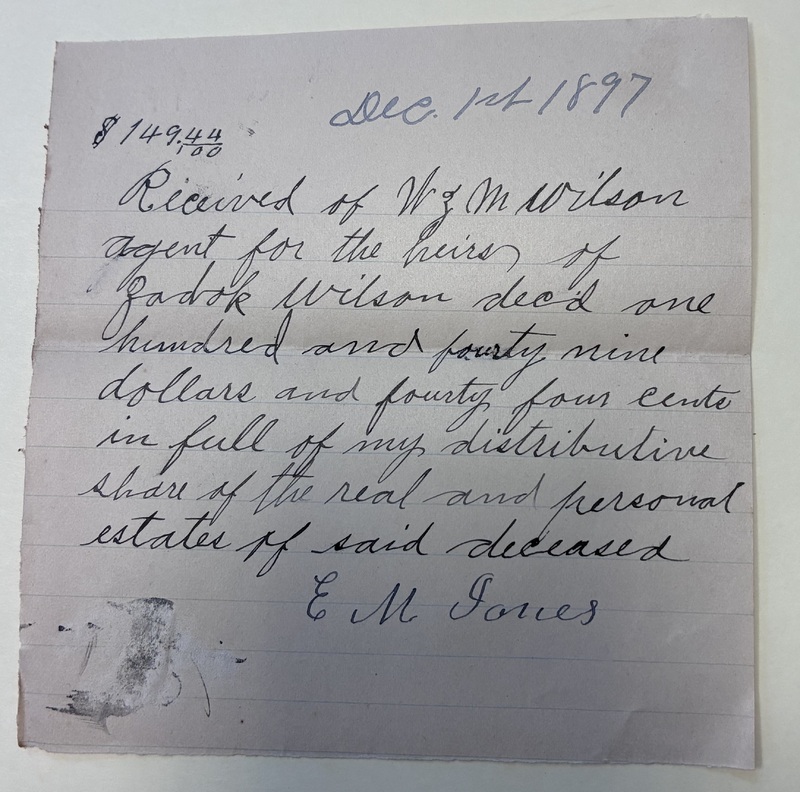 Dec. 1st 1897
$149.44/100
Received of W z M Wilson
agent for the heirs of
Zadok Wilson dec'd one
hundred and fourty nine
dollars and fourty four cents
in full of my distributive
share of the real and personal
estates of said deceased
E M Jones